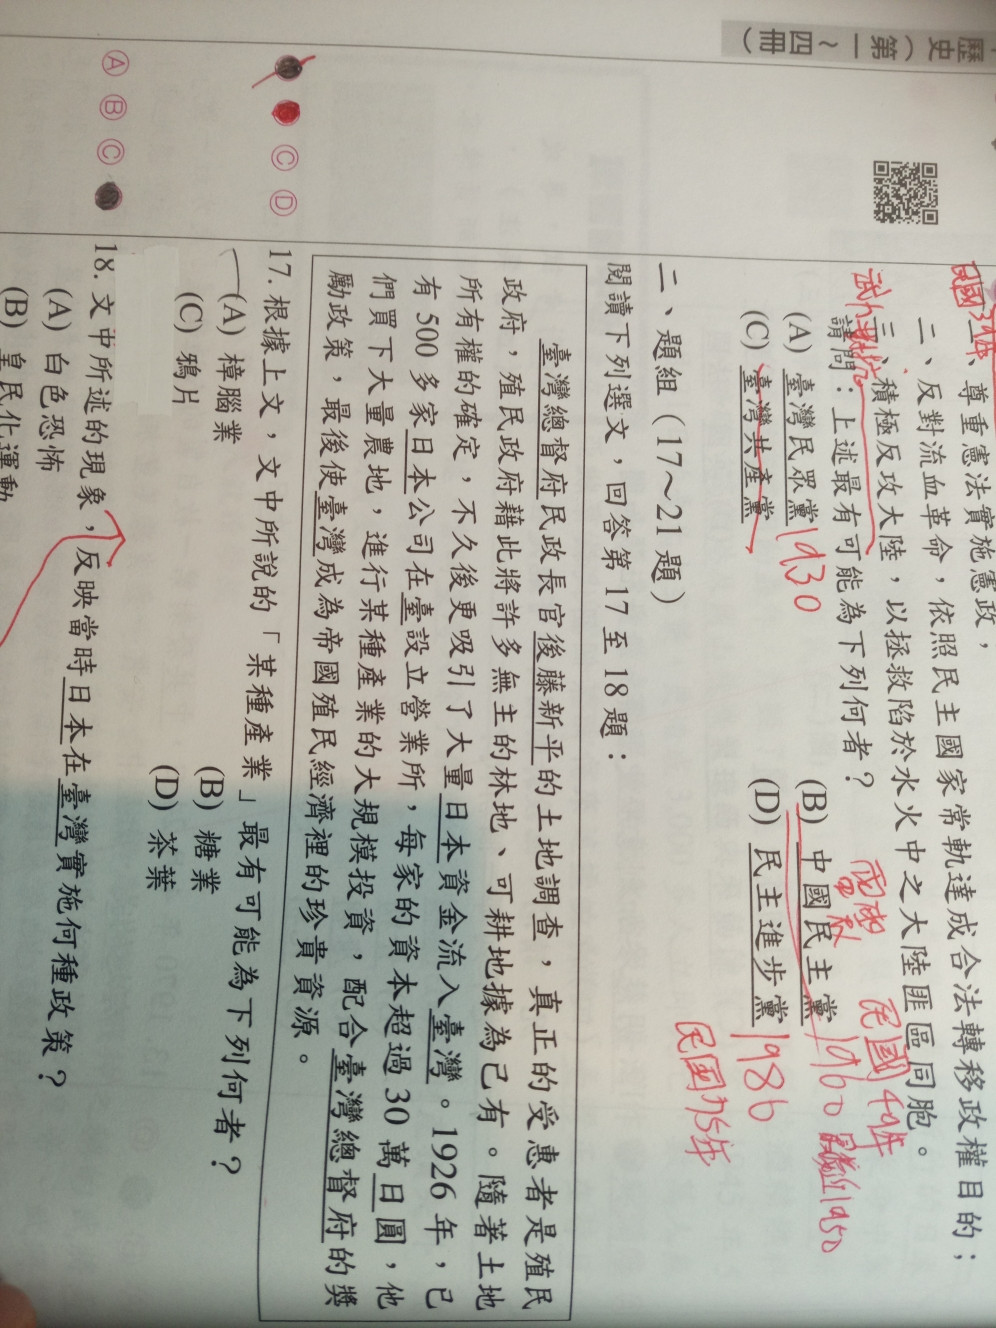 歷史（第一～四冊）
民國39年
一、尊重憲法實施憲政，
二、反對流血革命，依照民主國家常軌達成合法轉移政權目的；
三、積極反攻大陸，以拯救陷於水火中之大陸匪區同胞。
請問：上述最有可能為下列何者？
民國49年
(A) 臺灣民眾黨 1930
(B) 中國民主黨 1960 1950
(C) 臺灣共產黨
(D) 民主進步黨 1986
民國75年
二、題組（17～21題）
閱讀下列選文，回答第17至18題：
臺灣總督府民政長官後藤新平的土地調查，真正的受惠者是殖民
政府，殖民政府藉此將許多無主的林地、可耕地據為己有。隨著土地
所有權的確定，不久後更吸引了大量日本資金流入臺灣。1926年，已
有500多家日本公司在臺設立營業所，每家的資本超過30萬日圓，他
們買下大量農地，進行某種產業的大規模投資，配合臺灣總督府的獎
勵政策，最後使臺灣成為帝國殖民經濟裡的珍貴資源。
Ⓒ Ⓓ
17. 根據上文，文中所說的「某種產業」最有可能為下列何者？
(A) 樟腦業
(B) 糖業
(C) 鴉片
(D) 茶葉
Ⓐ Ⓑ Ⓒ
18. 文中所述的現象，反映當時日本在臺灣實施何種政策？
(A) 白色恐怖
(B) 皇民化運動